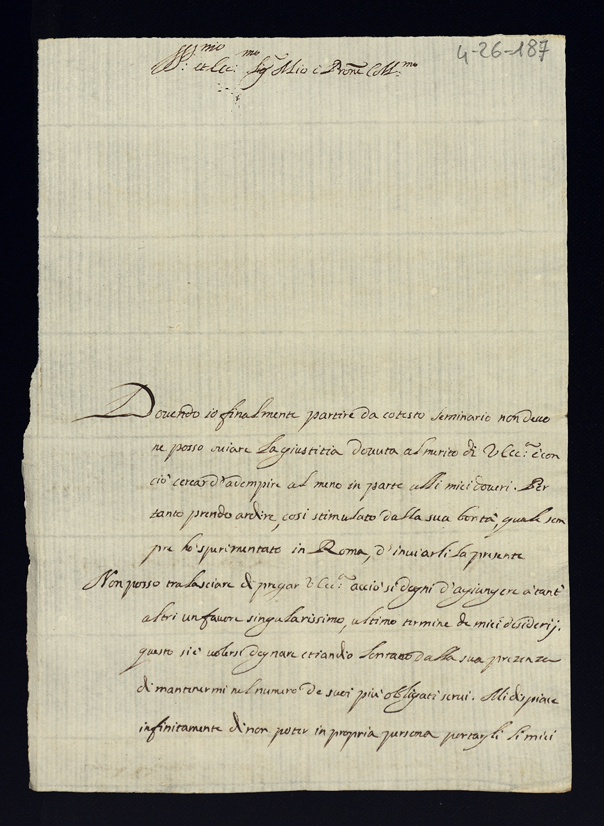 4-26-187
Ill.mo et Ecc.mo Sig. Mio e Prone Col.mo
Dovendo io finalmente partire da cotesto seminario non devo
ne posso sviare la giustitia dovuta al merito di V. Ecc.a e con
ciò cercar d'adempire al meno in parte alli miei doveri. Per
tanto prendo ardire, così stimulato dalla sua bontà, quale sem
pre hò sperimentato in Roma, d'inviarli la presente
Non posso tralasciare di pregar V. Ecc.a acciò si degni d'agiungere à tant'
altri un favore singularissimo, ultimo termine de miei desiderij.
questo si è volersi degnare etiandio lontano dalla sua prezenza
di mantenermi nel numero de suoi più obligati servi. Mi dispiace
infinitamente di non poter in propria persona portargli li miei